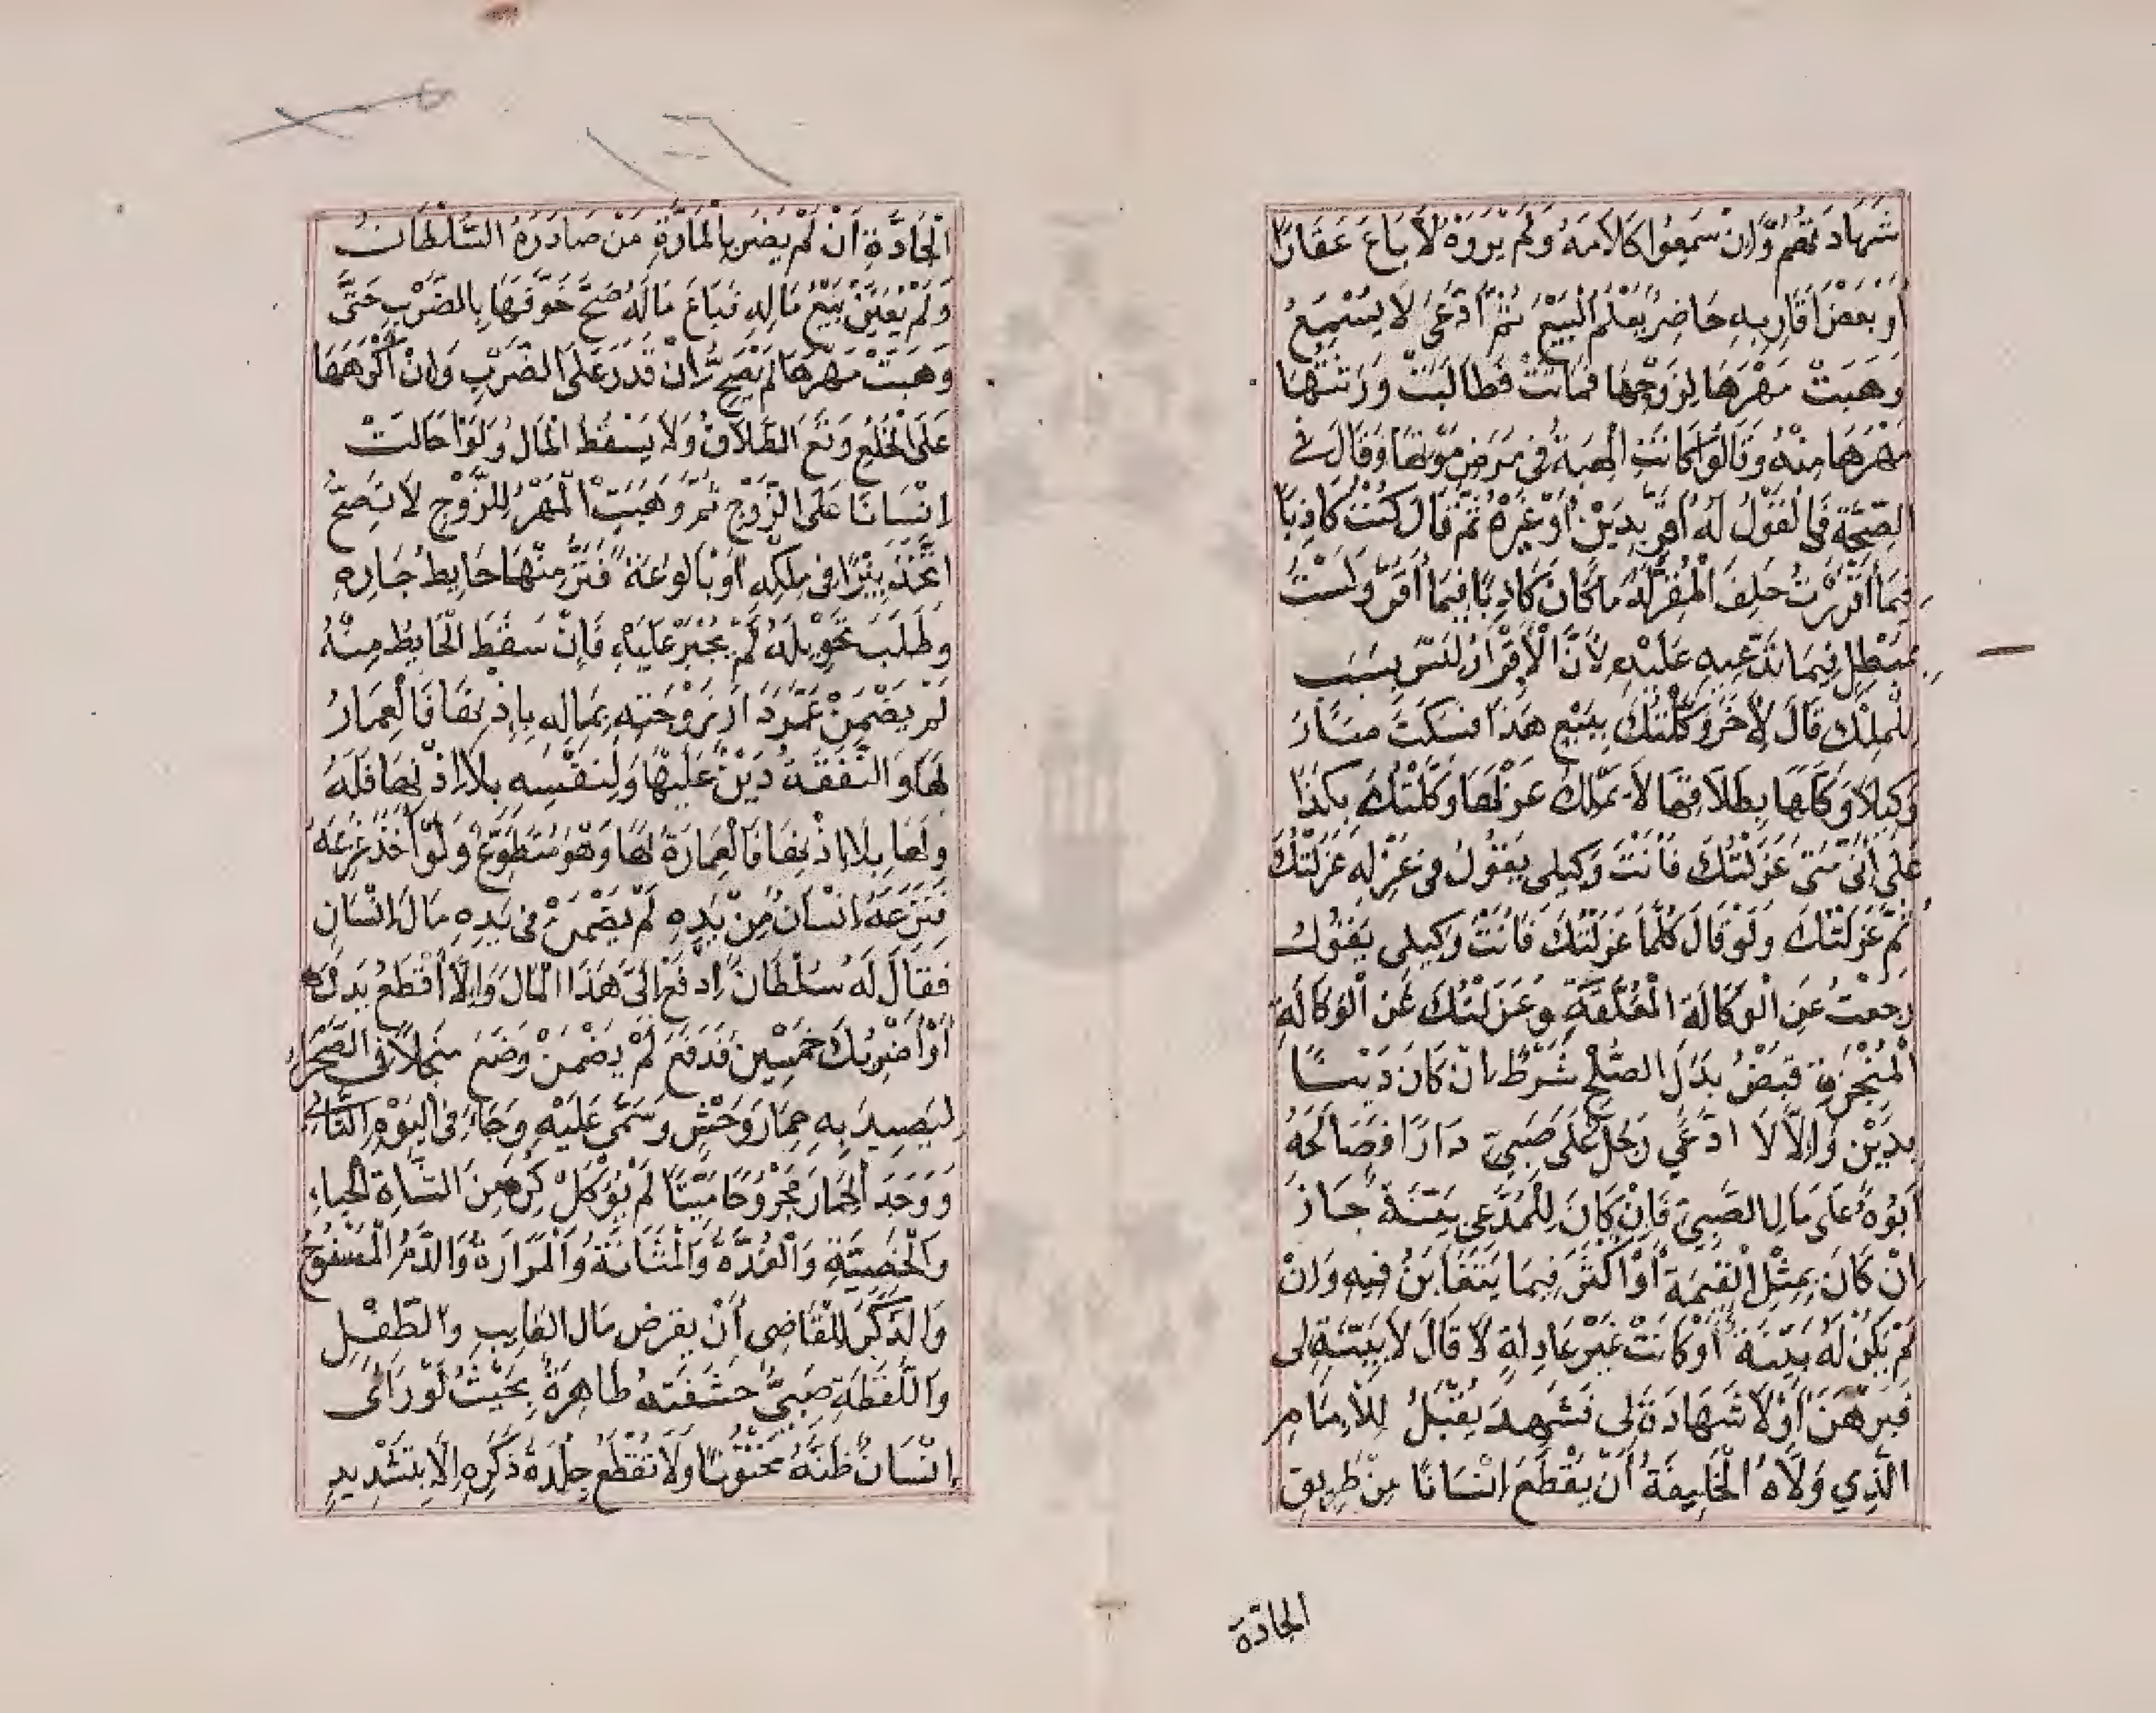 شَهَادَتُهُمْ وَّاِنْ سَمِعُوا كَلَامَهُ وَلَمْ يَرَوْهُ لَا بَاعَ عَقَارًا
اَوْ بَعْضُ اَقَارِبِهِ حَاضِرٌ يَعْلَمُ الْبَيْعَ ثُمَّ ادَّعٰى لَا يُسْمَعُ
وَهَبَتْ مَهْرَهَا لِزَوْجِهَا فَمَاتَتْ فَطَالَبَتْ وَرَثَتُهَا
مَهْرَهَا مِنْهُ وَقَالُوْا كَانَتِ الْهِبَةُ فِى مَرَضِ مَوْتِهَا وَقَالَ فِى
الصِّحَّةِ فَالْقَوْلُ لَهُ اَقَرَّ بِدَيْنٍ اَوْ غَيْرِهِ ثُمَّ قَالَ كُنْتُ كَاذِبًا
فِيْمَا اَقْرَرْتُ حَلَفَ الْمُقَرُّ لَهُ مَا كَانَ كَاذِبًا فِيْمَا اَقَرَّ وَلَسْتُ
بِمُبْطِلٍ فِيْمَا تَدَّعِيْهِ عَلَيْهِ لِاَنَّ الْاِقْرَارَ لَيْسَ بِسَبَبٍ
لِلْمِلْكِ قَالَ لِاٰخَرَ وَكَّلْتُكَ بِبَيْعِ هٰذَا فَسَكَتَ صَارَ
وَكِيْلًا وَكَّلَهَا بِطَلَاقِهَا لَا يَمْلِكُ عَزْلَهَا وَكَّلْتُكَ بِكَذَا
عَلٰى اَنِّىْ مَتٰى عَزَلْتُكَ فَاَنْتَ وَكِيْلِى يَقُوْلُ فِى عَزْلِهِ عَزَلْتُكَ
ثُمَّ عَزَلْتُكَ وَلَوْ قَالَ كُلَّمَا عَزَلْتُكَ فَاَنْتَ وَكِيْلِى يَقُوْلُ
رَجَعْتُ عَنِ الْوَكَالَةِ الْمُعَلَّقَةِ وَعَزَلْتُكَ عَنِ الْوَكَالَةِ
الْمُنْجَزَةِ قَبْضُ بَدَلِ الصُّلْحِ شَرْطٌ اِنْ كَانَ دَيْنًا
بِدَيْنٍ وَاِلَّا لَا ادَّعٰى رَجُلٌ عَلٰى صَبِىٍّ دَارًا فَصَالَحَهُ
اَبُوْهُ عَلٰى مَالِ الصَّبِىِّ فَاِنْ كَانَ لِلْمُدَّعِى بَيِّنَةٌ جَازَ
اِنْ كَانَ بِمِثْلِ الْقِيْمَةِ اَوْ اَكْثَرَ فِيْمَا يَتَغَابَنُ فِيْهِ وَاِنْ
لَمْ يَكُنْ لَهُ بَيِّنَةٌ اَوْ كَانَتْ غَيْرَ عَادِلَةٍ لَا قَالَ لَا بَيِّنَةَ لِى
فَبَرْهَنَ اَوْ لَا شَهَادَةَ لِى فَشَهِدَ يُقْبَلُ لِلْاِمَامِ
الَّذِى وَلَّاهُ الْخَلِيْفَةُ اَنْ يُقْطِعَ اِنْسَانًا مِنْ طَرِيْقِ
الجادّة
الْجَادَّةِ اَنْ لَمْ يَضُرَّ بِالْمَارَّةِ مَنْ صَادَرَهُ السُّلْطَانُ
وَلَمْ يُعَيِّنْ بَيْعَ مَالِهِ فَبَاعَ مَالَهُ صَحَّ خَوَّفَهَا بِالضَّرْبِ حَتّٰى
وَهَبَتْ مَهْرَهَا لَمْ يَصِحَّ اِنْ قَدَرَ عَلَى الضَّرْبِ وَاِنْ اَكْرَهَهَا
عَلَى الْخُلْعِ وَقَعَ الطَّلَاقُ وَلَا يَسْقُطُ الْمَالُ وَلَوْ اَحَالَتْ
اِنْسَانًا عَلَى الزَّوْجِ ثُمَّ وَهَبَتِ الْمَهْرَ لِلزَّوْجِ لَا يَصِحُّ
اتَّخَذَ بِئْرًا فِى مِلْكِهِ اَوْ بَالُوْعَةً فَنَزَّ مِنْهَا حَايِطُ جَارِهِ
وَطَلَبَ تَحْوِيْلَهُ لَمْ يُجْبَرْ عَلَيْهِ فَاِنْ سَقَطَ الْحَايِطُ مِنْهُ
لَمْ يَضْمَنْ عَمَّرَ دَارَ زَوْجَتِهِ بِمَالِهِ بِاِذْنِهَا فَالْعِمَارُ
لَهَا وَالنَّفَقَةُ دَيْنٌ عَلَيْهَا وَلِنَفْسِهِ بِلَا اِذْنِهَا فَلَهُ
وَلَهَا بِلَا اِذْنِهَا فَالْعِمَارَةُ لَهَا وَهُوَ مُتَطَوِّعٌ وَلَوْ اَخَذَ غَرِيْمَهُ
فَنَزَعَهُ اِنْسَانٌ مِنْ يَدِهِ لَمْ يَضْمَنْ فِى يَدِهِ مَالُ اِنْسَانٍ
فَقَالَ لَهُ سُلْطَانٌ اِدْفَعْ اِلَىَّ هٰذَا الْمَالَ وَاِلَّا اَقْطَعُ يَدَكَ
اَوْ اَضْرِبُكَ خَمْسِيْنَ فَدَفَعَ لَمْ يَضْمَنْ وَضَعَ مِنْجَلًا فِى الصَّحْرَاءِ
لِيَصِيْدَ بِهِ حِمَارَ وَحْشٍ وَسَمّٰى عَلَيْهِ وَجَاءَ فِى الْيَوْمِ الثَّانِى
وَوَجَدَ الْحِمَارَ مَجْرُوْحًا مَيْتًا لَمْ يُؤْكَلْ كُرِهَ مِنَ الشَّاةِ الْحَيَاءُ
وَالْخُصْيَةِ وَالْغُدَّةُ وَالْمَثَانَةُ وَالْمَرَارَةُ وَالدَّمُ الْمَسْفُوْحُ
وَالذَّكَرُ لِلْقَاضِى اَنْ يُقْرِضَ مَالَ الْغَايِبِ وَالطِّفْلِ
وَاللُّقَطَةِ صَبِىٌّ حَشَفَتُهُ ظَاهِرَةٌ بِحَيْثُ لَوْ رَاٰى
اِنْسَانٌ ظَنَّهُ مَخْتُوْنًا وَلَا تُقْطَعُ جِلْدَةُ ذَكَرِهِ اِلَّا بِتَشْدِيْدٍ